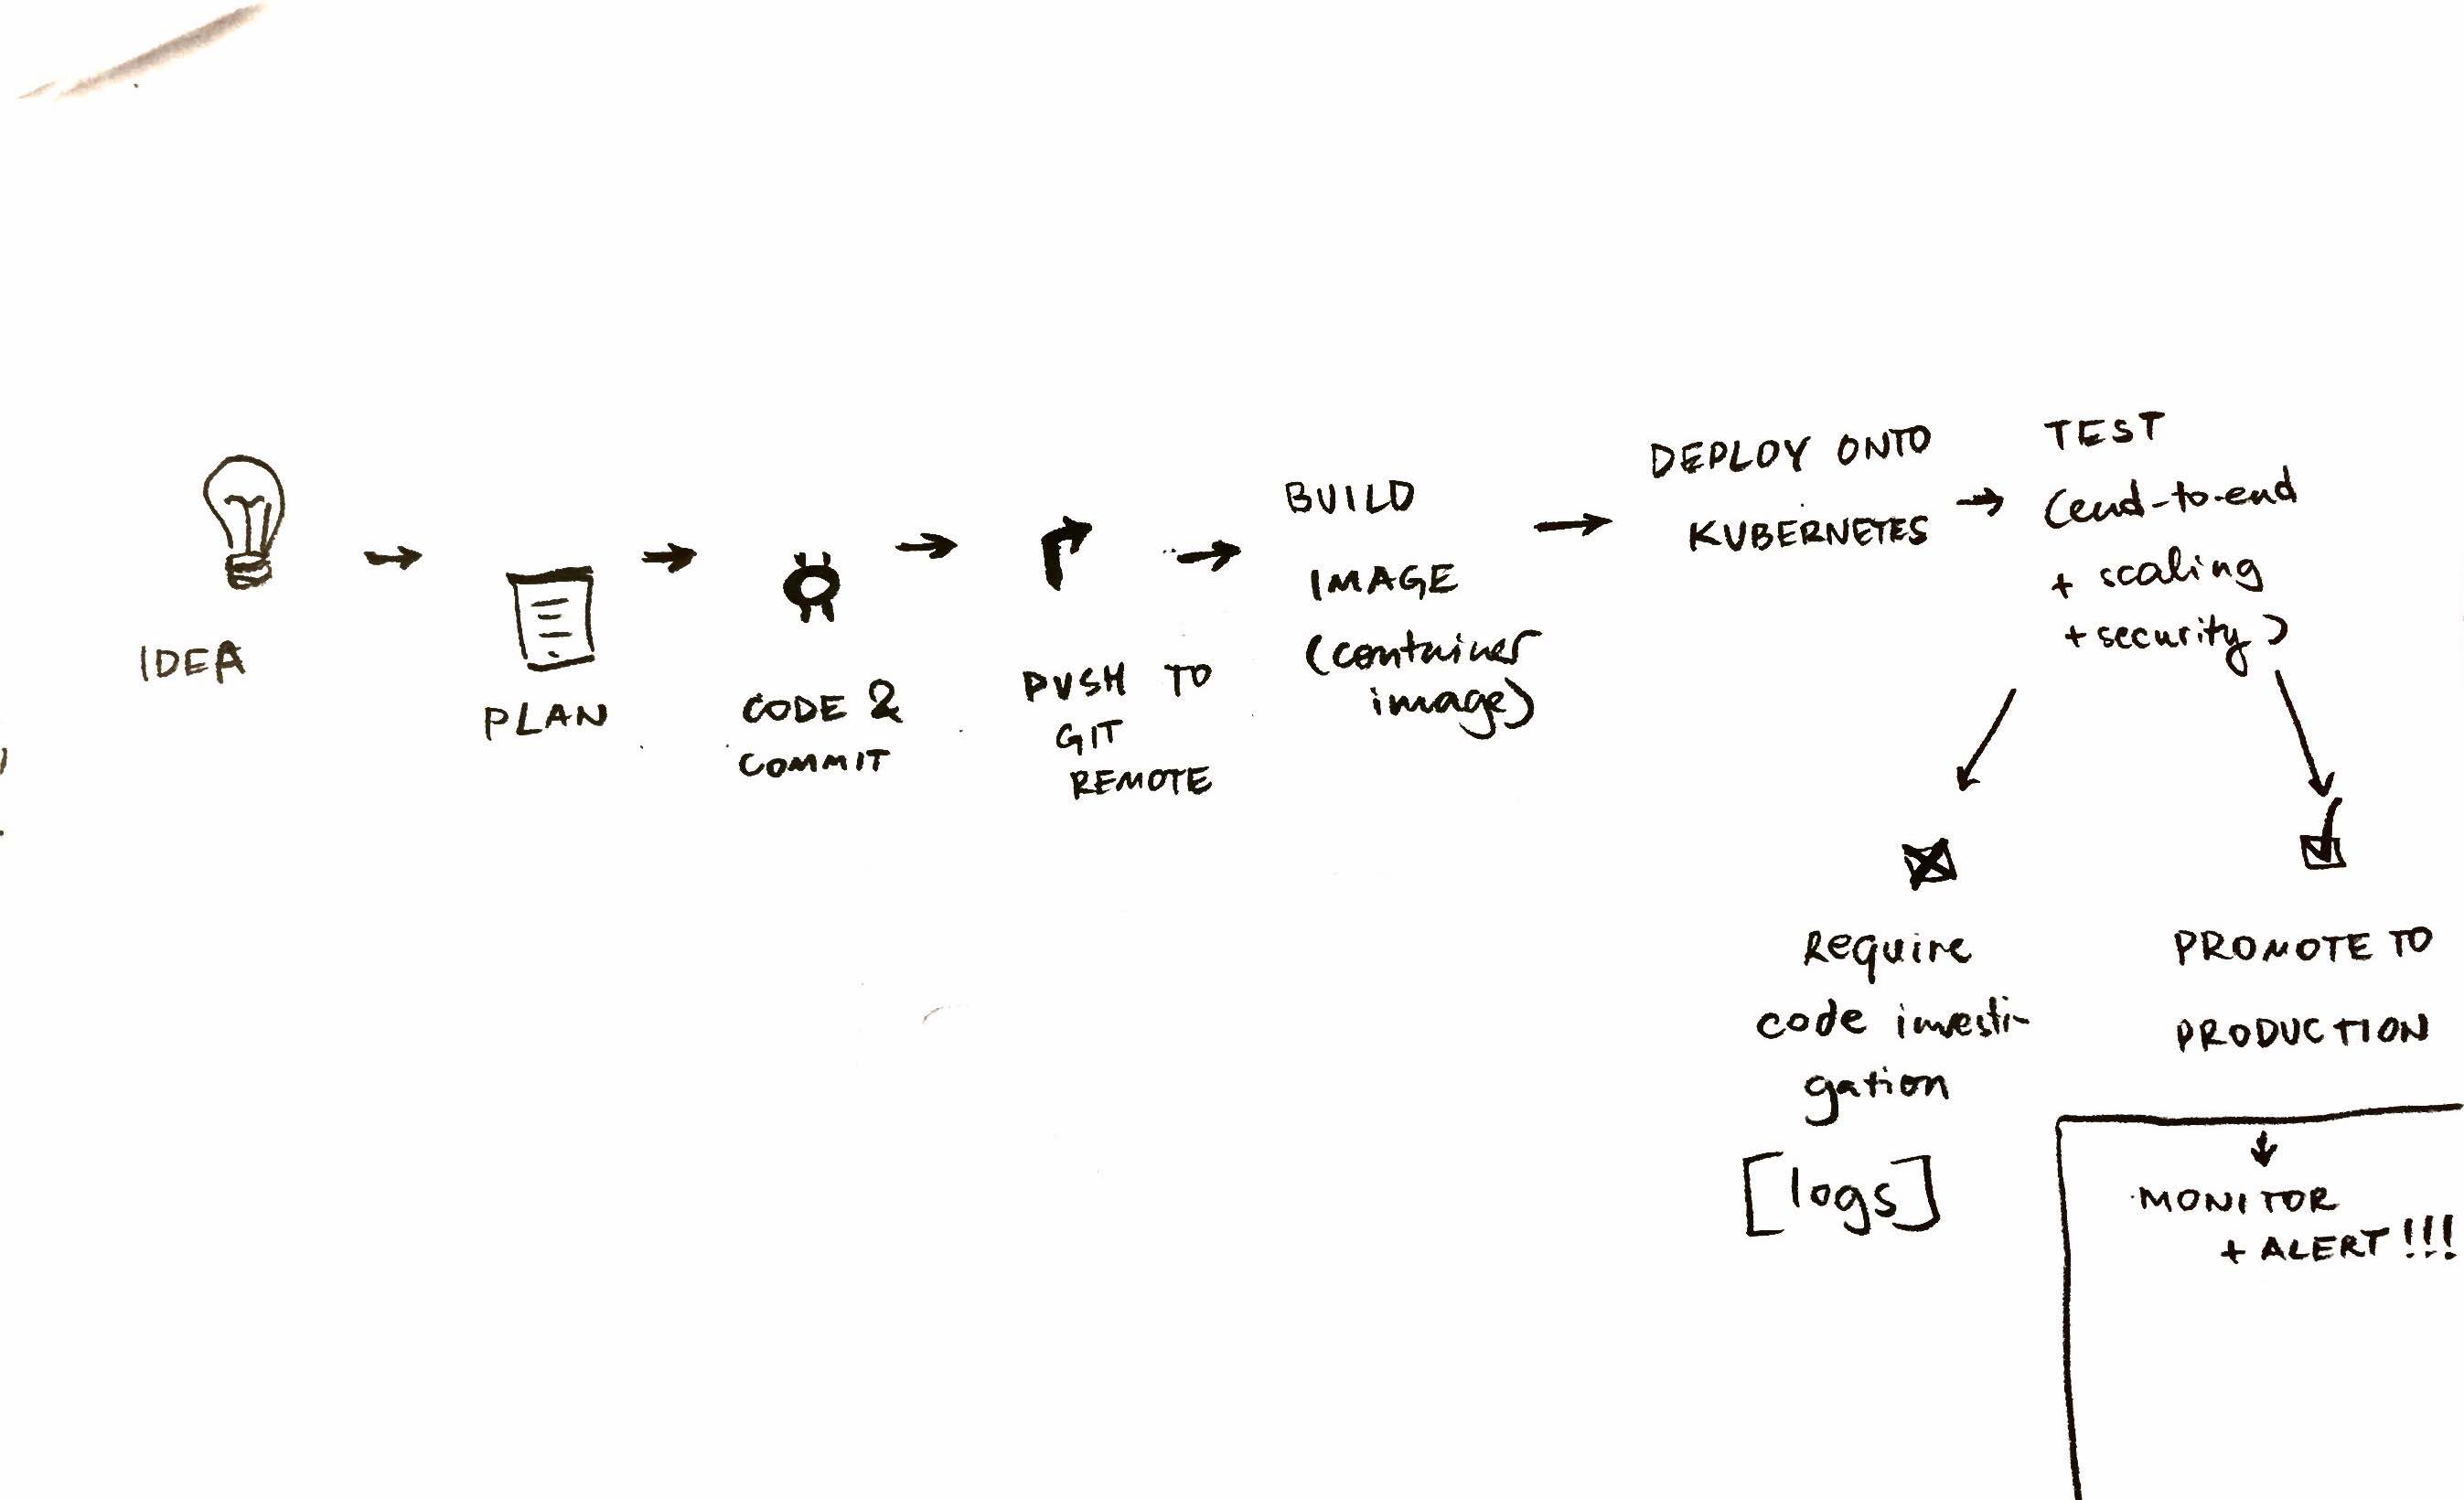 IDEA
PLAN
CODE &
COMMIT
PUSH TO
GIT
REMOTE
BUILD
IMAGE
(container
image)
DEPLOY ONTO
KUBERNETES
TEST
(end-to-end
+ scaling
+ security)
Require
code investi-
gation
[logs]
PROMOTE TO
PRODUCTION
MONITOR
+ ALERT!!!